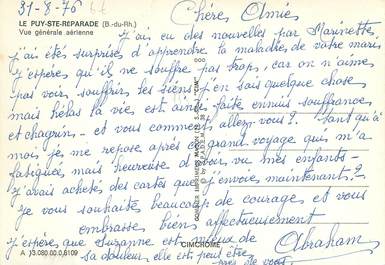 31-8-76
LE PUY-STE-REPARADE (B.-du-Rh.)
Vue générale aérienne
Chères Amies
j'ai eu des nouvelles par Marinette
j'ai étés surprises d'apprendre la maladies de votre maris
j'espères qu'il ne souffre pas trop, car on n'aime
pas voir souffrir les siens j'en sais quelque chose
mais hélas la vie est ainsi faite ennuis souffrance
et chagrin - et vous comment allez-vous? Tant qu'à
moi je me repose après ce grand voyage qui m'a
fatiguées mais heureuse d'avoir vu mes enfants -
j'avais achetés des cartes que j'envoie maintenant?
je vous souhaités beaucoup de courage et vous
embrasse bien affectueusement
j'espère que Suzanne est mieux de
sa douleur elle est peut être
près de vous
Abraham
CIMCHROME
A 13.080.00.0.8109